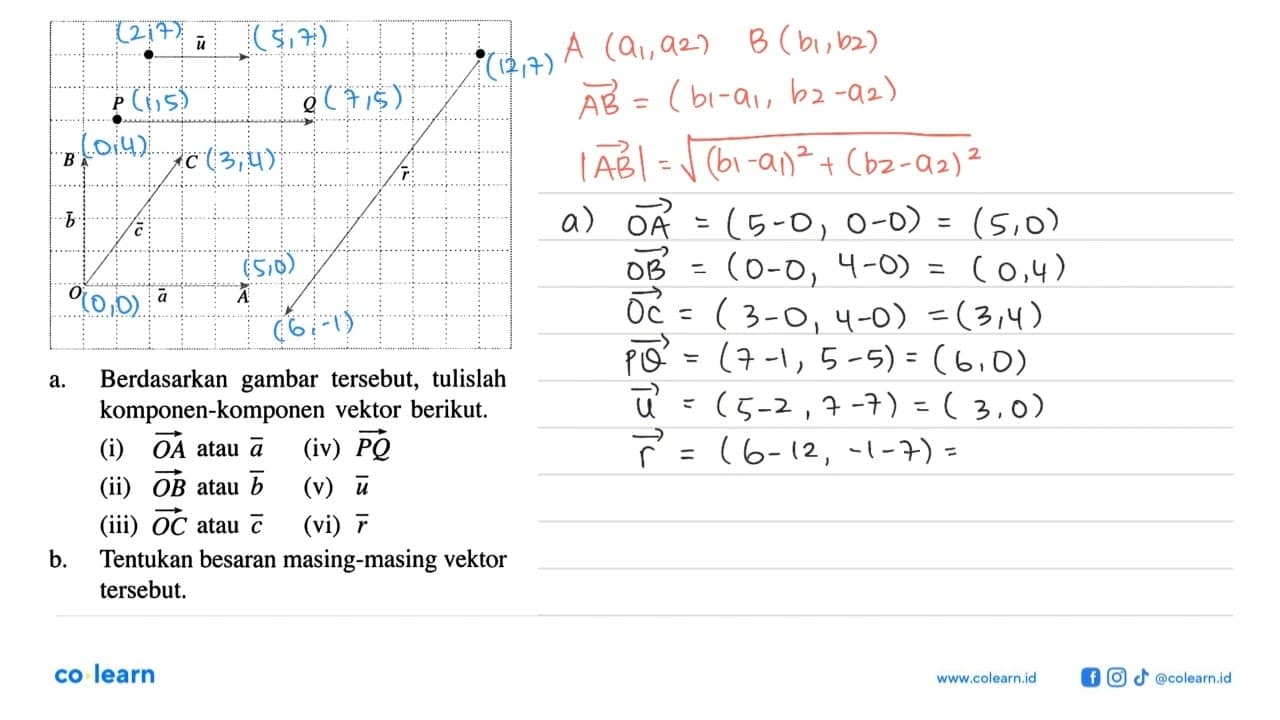 (2,7) ū (5,7)
(12,7)
P (1,5) Q (7,5)
B (0,4) C (3,4)
r̄
b̄ c̄
(5,0)
O (0,0) ā A
(6,-1)
a. Berdasarkan gambar tersebut, tulislah
komponen-komponen vektor berikut.
(i) OA atau ā (iv) PQ
(ii) OB atau b̄ (v) ū
(iii) OC atau c̄ (vi) r̄
b. Tentukan besaran masing-masing vektor
tersebut.
A (a1,a2) B (b1,b2)
AB = (b1-a1, b2-a2)
|AB| = √(b1-a1)² + (b2-a2)²
a) OA = (5-0, 0-0) = (5,0)
OB = (0-0, 4-0) = (0,4)
OC = (3-0, 4-0) = (3,4)
PQ = (7-1, 5-5) = (6,0)
u = (5-2, 7-7) = (3,0)
r = (6-12, -1-7) =
co learn
www.colearn.id
@colearn.id